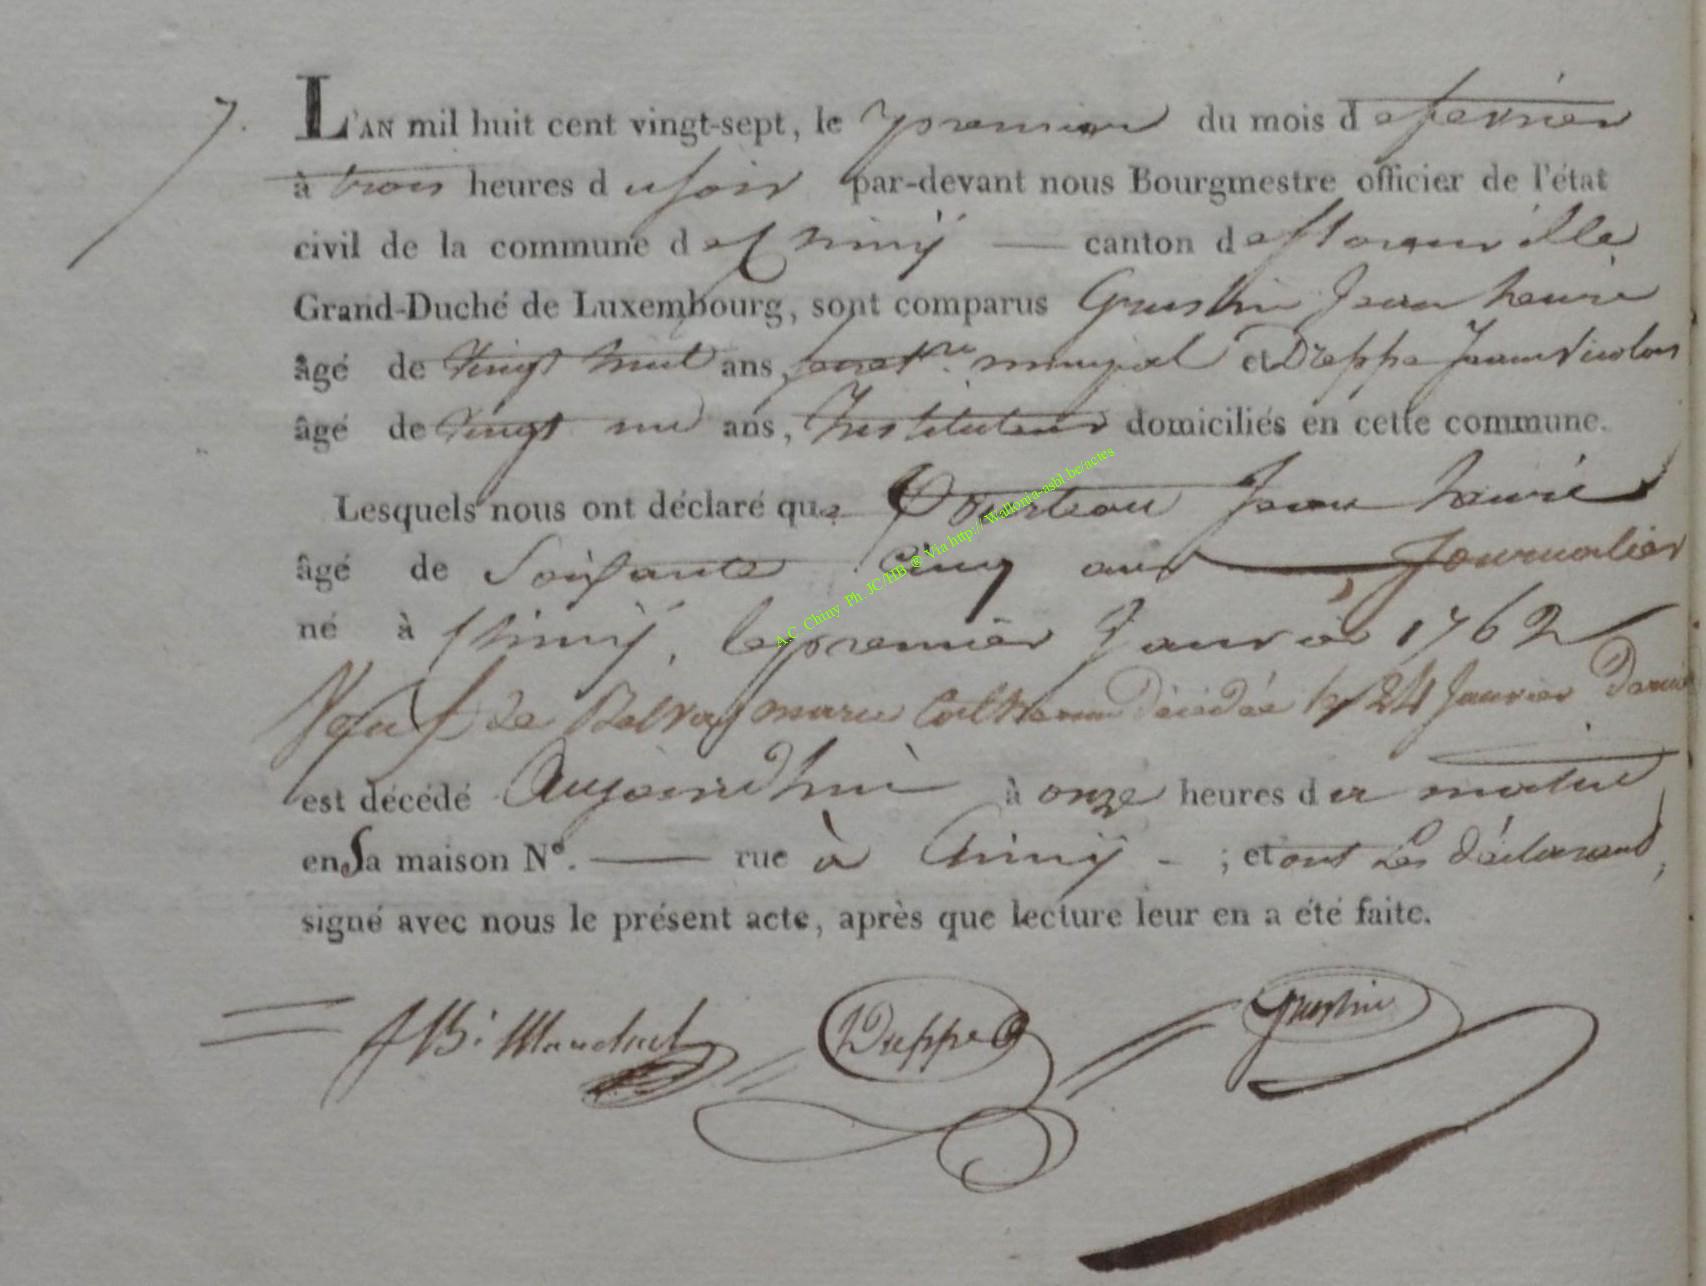 7.
L'AN mil huit cent vingt-sept, le premier du mois de fevrier
à trois heures du soir par-devant nous Bourgmestre officier de l'état
civil de la commune de Chinÿ — canton de florenville
Grand-Duché de Luxembourg, sont comparus Grustin Jean henri
âgé de vingt huit ans, secret.re municipal et Dreppe Jean Nicolas
âgé de vingt un ans, Instituteur domiciliés en cette commune.
Lesquels nous ont déclaré que Jean henri
âgé de Soixante Cinq ans Journalier
né à Chinÿ, le premier Janvier 1762
Veuf de marie Catherine Décédée le 24 Janvier Dernier
est décédé aujourdhui à onze heures du matin
en Sa maison N°. — rue à Chinÿ - ; et ont Les déclarans,
signé avec nous le présent acte, après que lecture leur en a été faite.
Dreppe Grustin
A.C Chiny Ph. JC/HB @ Via http://Wallonia-asbl.be/actes